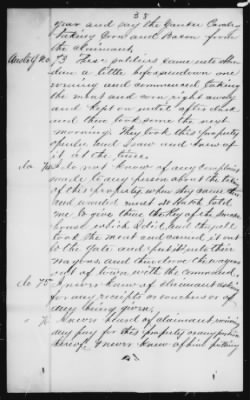 38
year and say the Yankee Cavalry
taking Corn and Bacon from
the claimant.
Ans to Q No. 73 These soldiers came into
down a little before sundown one
evening and commenced taking
the wheat and corn right away
and kept on until after dark
and then took some the next
morning. They took this property
openly and I saw and knew of
it at the time.
do 74 I do not know of any complaint
made to any person about the taking
of this property when they came there
and wanted meat
me to give them the key of the smoke
house which I did and they all
took the meat and carried it out
to the gate and put it into their
wagons, and then drove the wagons
out of town with the command.
do 75 I never knew of claimant asking
for any receipts or vouchers or of
any being given.
" 76 I never heard of claimant receiving
any pay for this property or any portion
thereof. I never knew of him putting